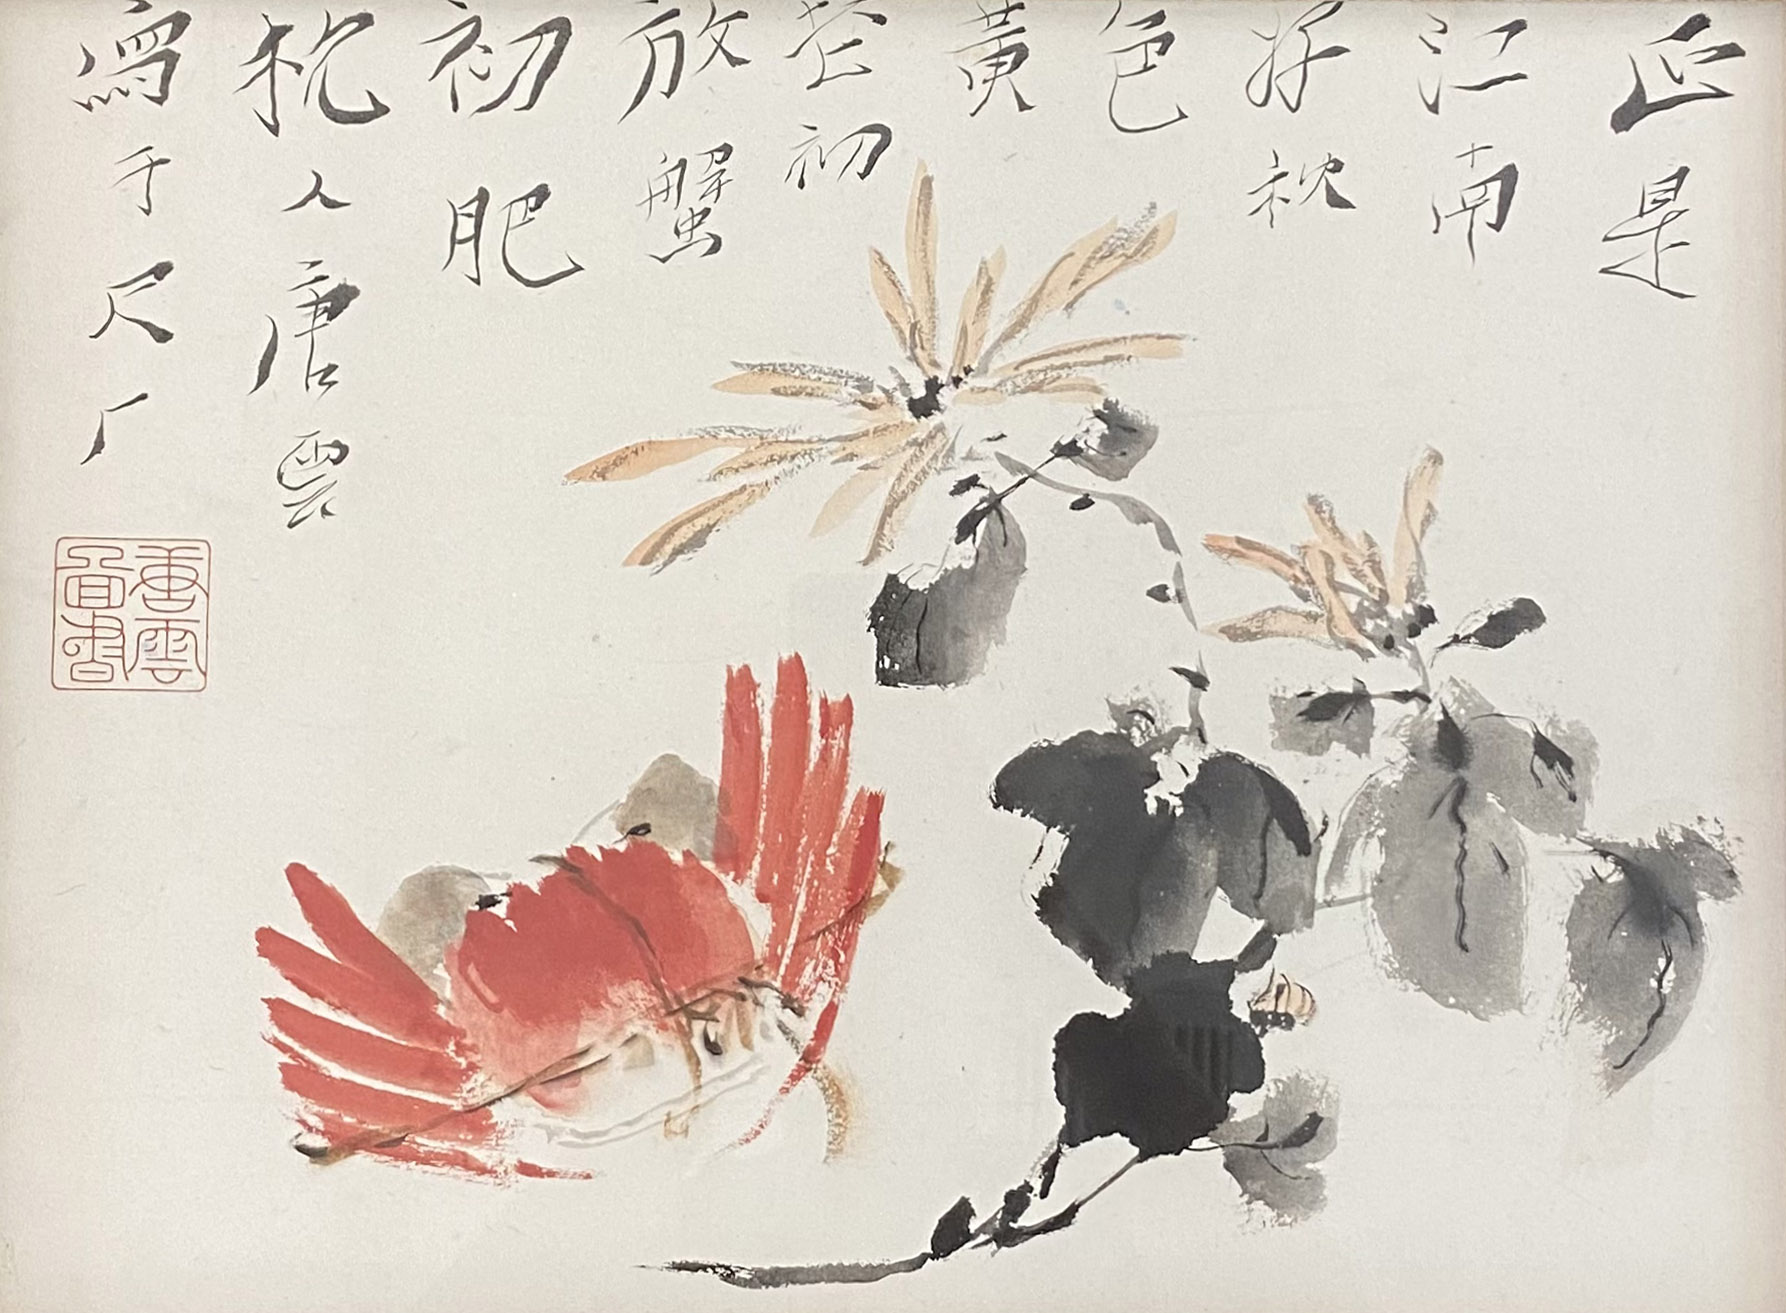 正是
江南
好秋
色
黃
花初
放蟹
初肥
杭人唐雲
寫于尺厂
唐雲